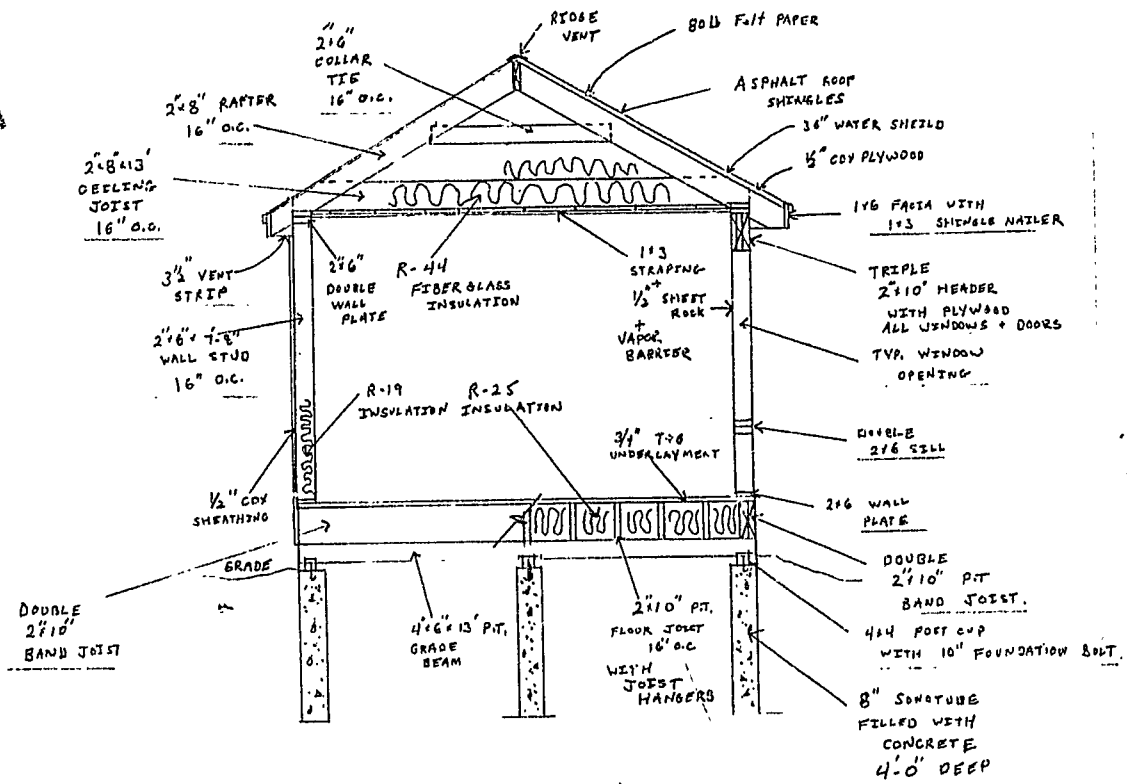 RIDGE
VENT
80LB FELT PAPER
2"x6"
COLLAR
TIE
16" O.C.
ASPHALT ROOF
SHINGLES
2"x8" RAFTER
16" O.C.
36" WATER SHEILD
1/2" CDX PLYWOOD
2"x8"x13'
CEILING
JOIST
16" O.C.
1x6 FACIA WITH
1x3 SHINGLE NAILER
3 1/2" VENT
STRIP
2"x6"
DOUBLE
WALL
PLATE
R-44
FIBERGLASS
INSULATION
1x3
STRAPING
+
1/2" SHEET
ROCK
+
VAPOR
BARRIER
TRIPLE
2"x10" HEADER
WITH PLYWOOD
ALL WINDOWS + DOORS
2"x6"x 7'-8"
WALL STUD
16" O.C.
TYP. WINDOW
OPENING
R-19
INSULATION
R-25
INSULATION
3/4" T+G
UNDERLAYMENT
DOUBLE
2x6 SILL
1/2" CDX
SHEATHING
2x6 WALL
PLATE
GRADE
DOUBLE
2"x10" P.T
BAND JOIST.
DOUBLE
2"x10"
BAND JOIST
4"x6"x13' P.T.
GRADE
BEAM
2"x10" P.T.
FLOOR JOIST
16" O.C
WITH
JOIST
HANGERS
4x4 POST CUP
WITH 10" FOUNDATION BOLT.
8" SONOTUBE
FILLED WITH
CONCRETE
4'-0" DEEP